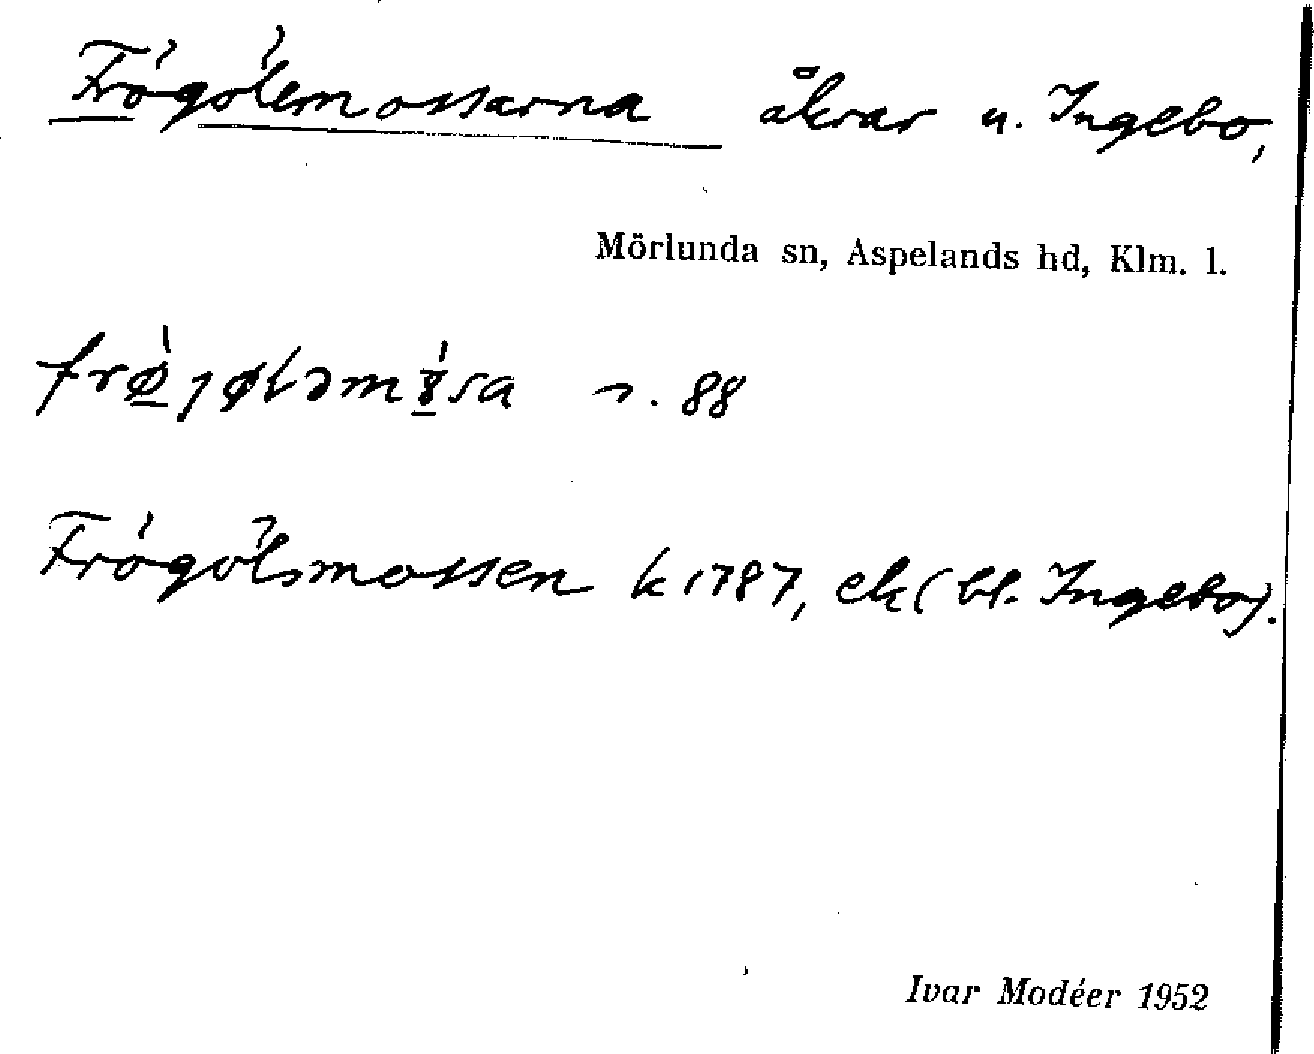 Frögölemossarna åkrar u. Ingebo,
Mörlunda sn, Aspelands hd, Klm. l.
s. 88
Frögölsmossen k 1787, ek (bl. Ingebo).
Ivar Modéer 1952